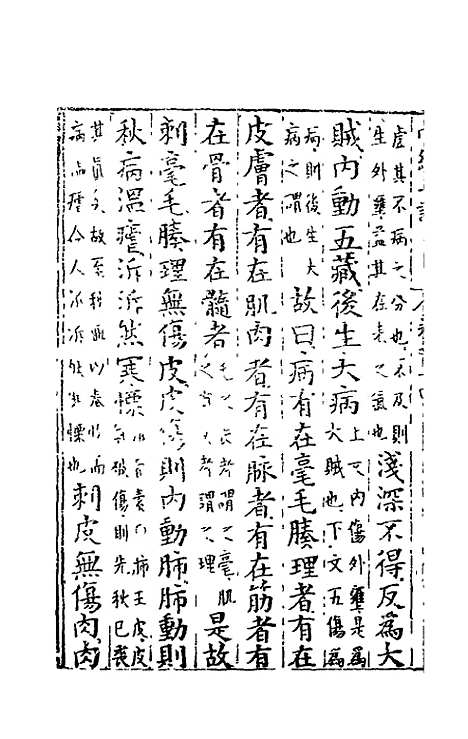 虛其不病之分也不及則
生外壅益其在表之氣也
淺深不得反為大
賊內動五藏後生大病
上文內傷外壅是為
大賊也下文五傷為
病則後生大
病之謂也
故曰病有在毫毛腠理者有在
皮膚者有在肌肉者有在脉者有在筋者有
在骨者有在髓者
毛之長者謂之毫肌
之文者謂之理
是故
刺毫毛腠理無傷皮皮傷則內動肺肺動則
秋病溫瘧泝泝然寒慄
肺王皮
氣被傷則先秋已喪
其真矣故至秋
病溫瘧令人泝泝然寒慄也
刺皮無傷肉肉